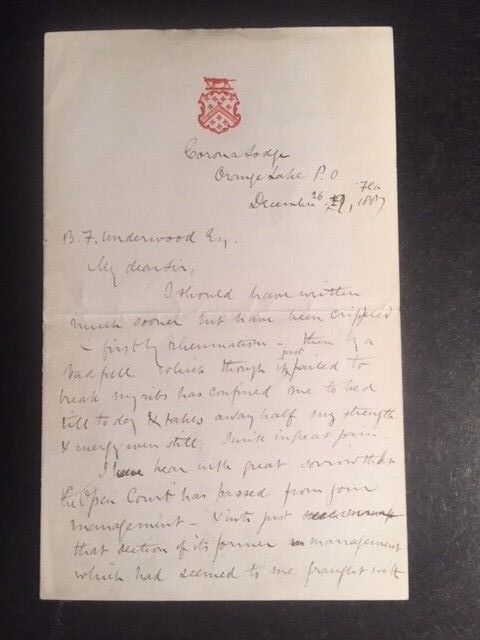 Corona Lodge
Orange Lake P.O
Fla
December 26, 1887
B. F. Underwood Esq.
My dear Sir,
I should have written
much sooner but have been crippled
– first by rheumatism – then by a
bad fall which though it just failed to
break my ribs has confined me to bed
till today & takes away half my strength
& energy even still. I write in great pain.
I hear with great sorrow that
the "Open Court" has passed from your
management – & into just
that section of its former management
which had seemed to me fraught with